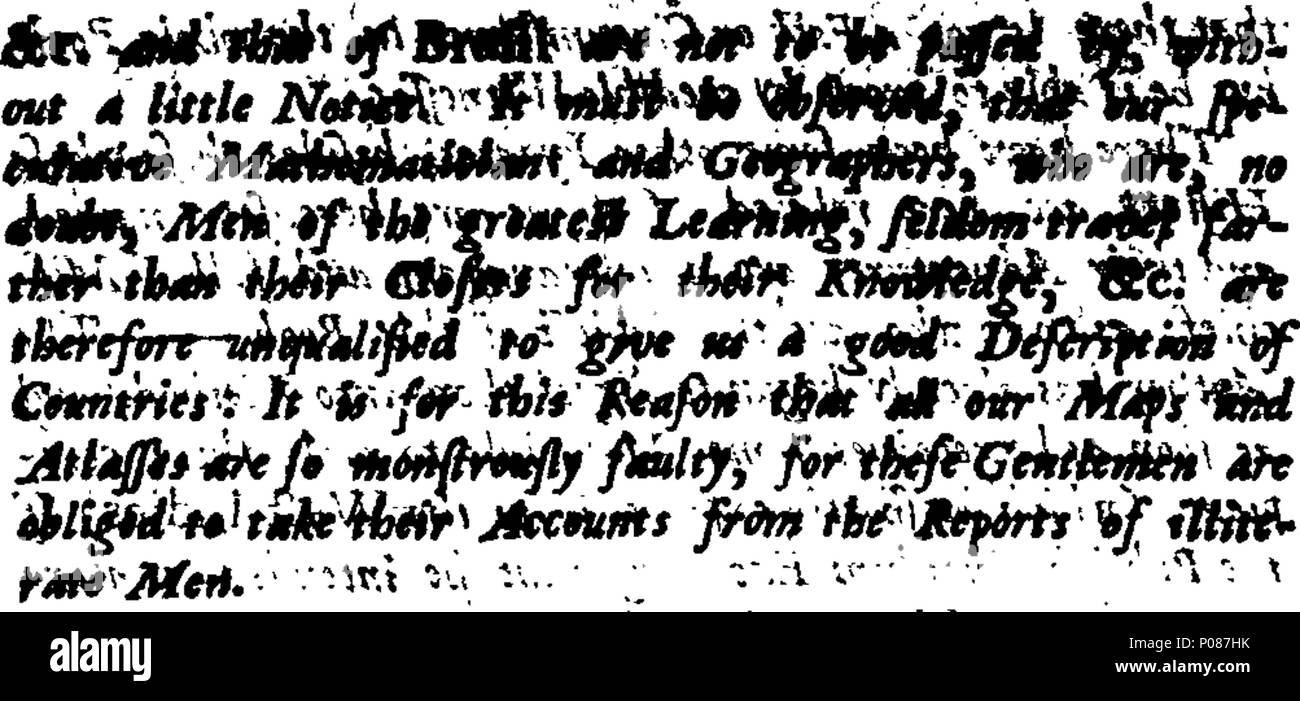 &c. and that of Brasil are not to be passed by, with-
out a little Notice. It must be observed, that our spe-
culative Mathematicians and Geographers, who are, no
doubt, Men of the greatest Learning, seldom travel far-
ther than their Closets for their Knowledge, &c. are
therefore unqualified to give us a good Description of
Countries: It is for this Reason that all our Maps and
Atlasses are so monstrously faulty, for these Gentlemen are
obliged to take their Accounts from the Reports of illite-
rate Men.
alamy
a
alamy
Image ID: P087HK
www.alamy.com